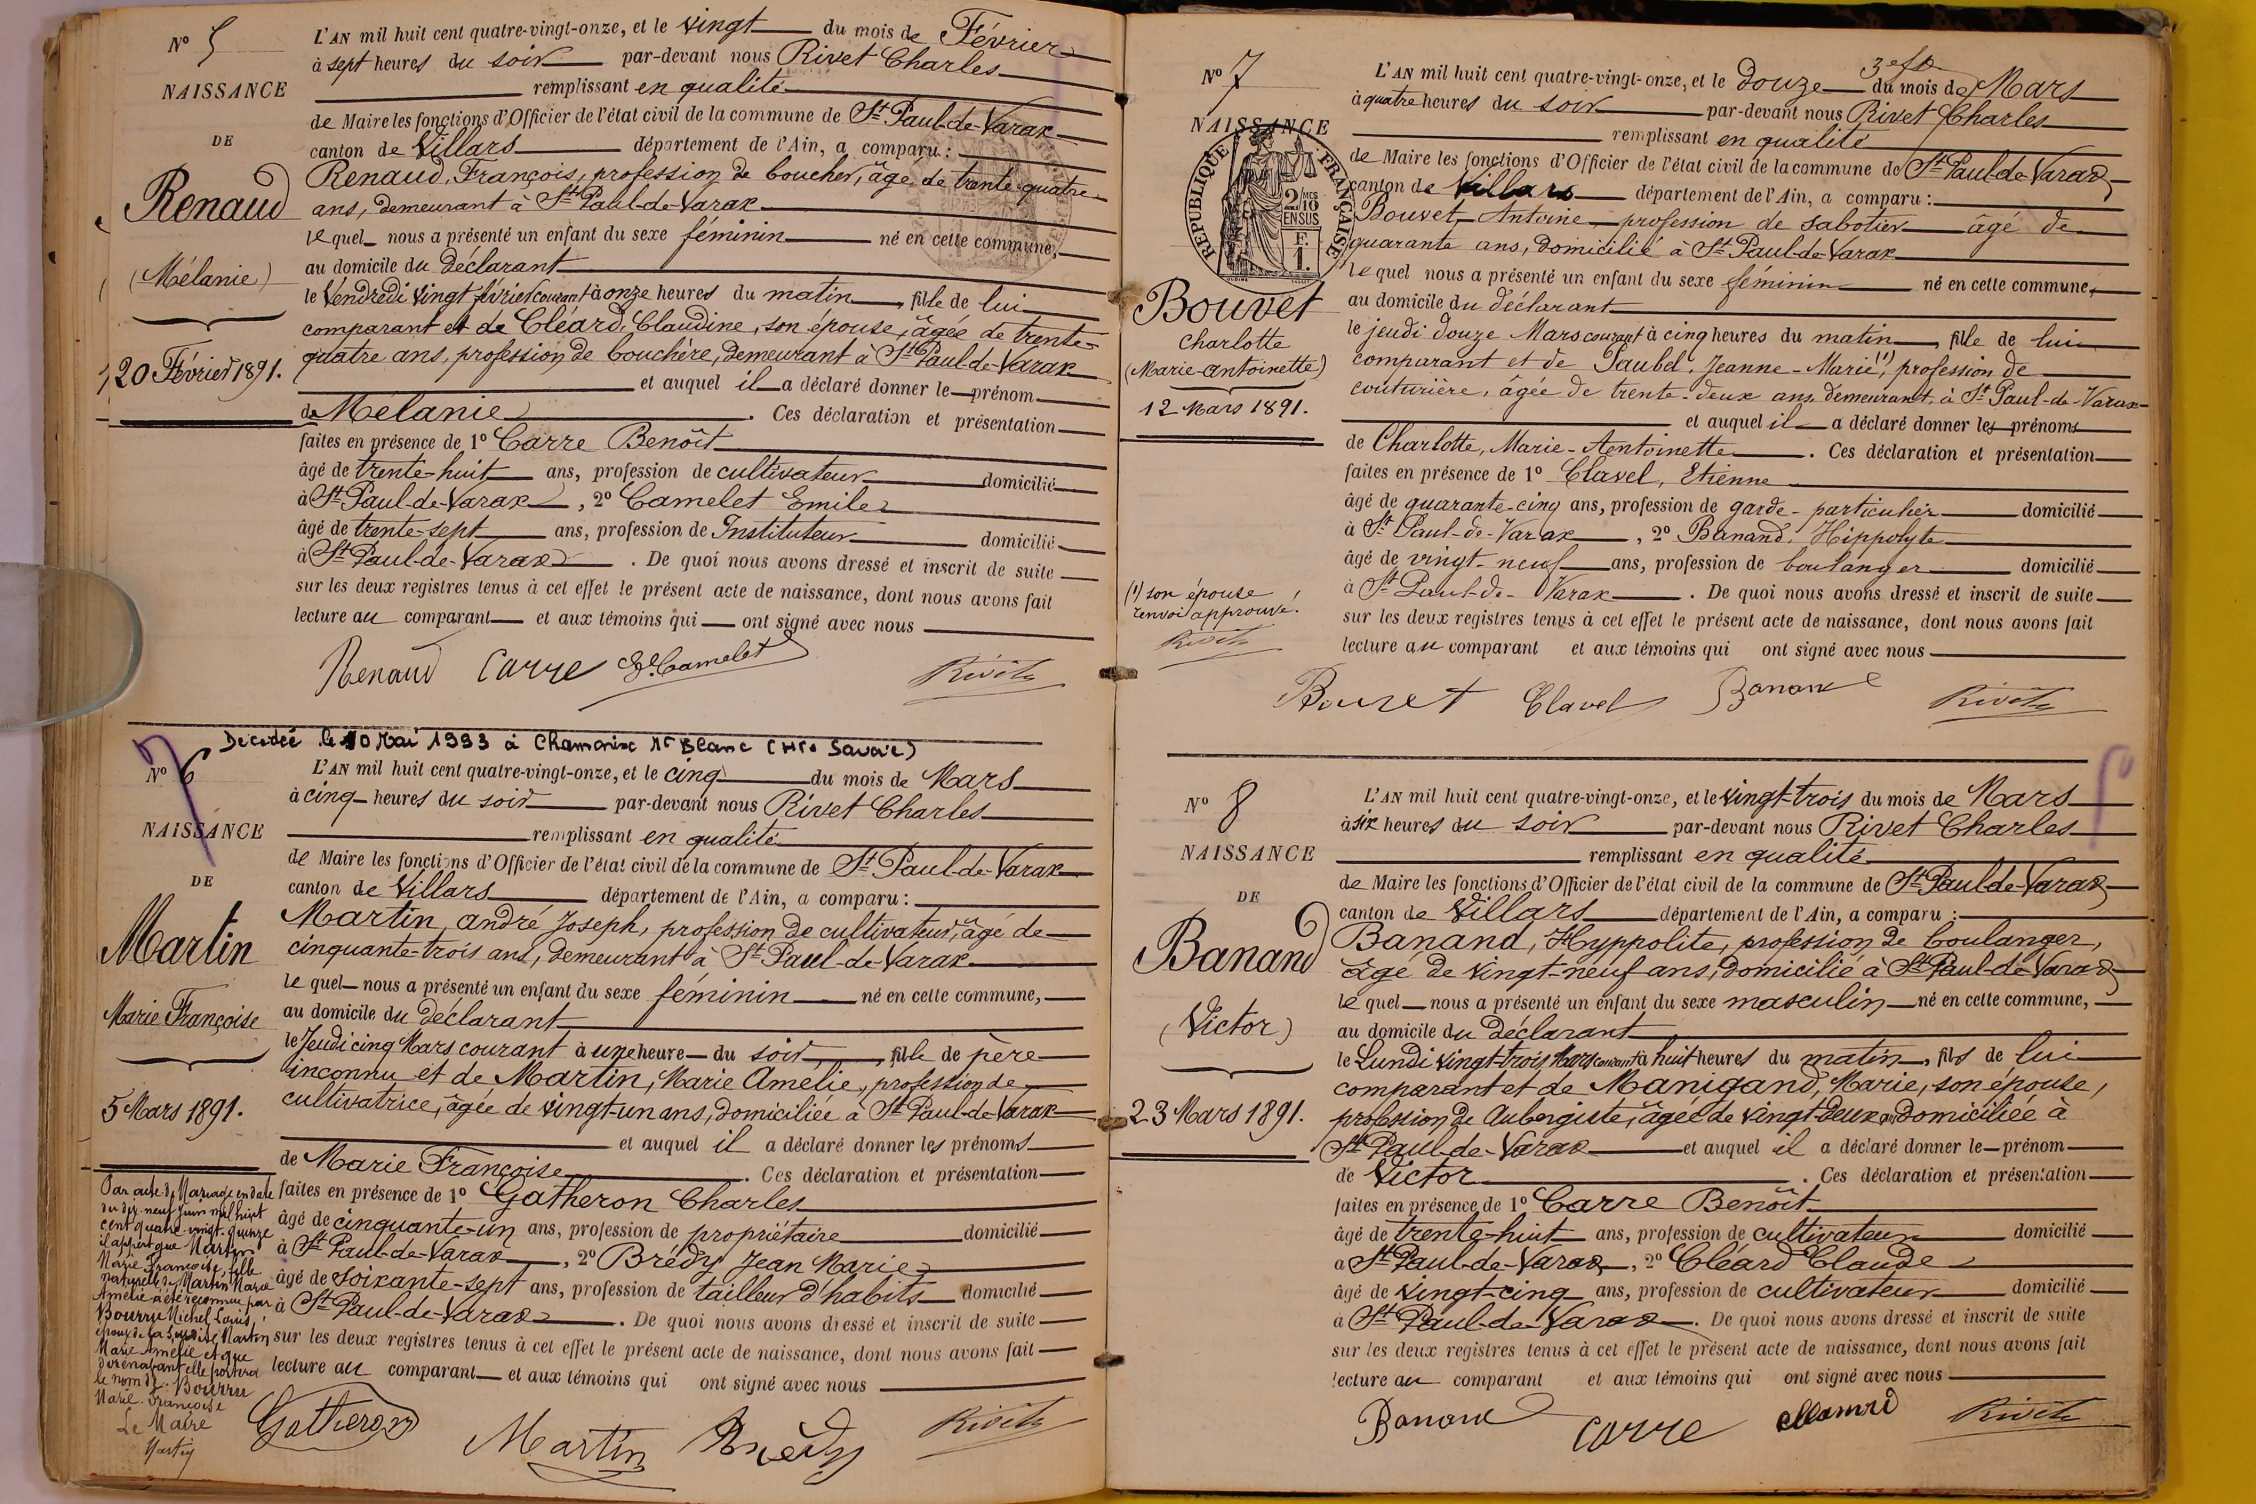 N° 5
NAISSANCE
DE
Renaud
(Mélanie)
20 Février 1891.
L'AN mil huit cent quatre-vingt-onze, et le vingt du mois de Février
à sept heures du soir par-devant nous Rivet Charles
remplissant en qualité
de Maire les fonctions d'Officier de l'état civil de la commune de St Paul-de-Varax
canton de Villars département de l'Ain, a comparu :
Renaud, François, profession de boucher, âgé de trente-quatre
ans, demeurant à St Paul-de-Varax
lequel nous a présenté un enfant du sexe féminin né en cette commune,
au domicile du déclarant
le Vendredi vingt février courant à onze heures du matin, fille de lui
comparant et de Cléard, Claudine, son épouse, âgée de trente-
quatre ans, profession de bouchère, demeurant à St Paul-de-Varax
et auquel il a déclaré donner le prénom
de Mélanie. Ces déclaration et présentation
faites en présence de 1° Carre Benoît
âgé de trente-huit ans, profession de cultivateur domicilié
à St Paul-de-Varax, 2° Camelet Emile
âgé de trente-sept ans, profession de Instituteur domicilié
à St Paul-de-Varax. De quoi nous avons dressé et inscrit de suite
sur les deux registres tenus à cet effet le présent acte de naissance, dont nous avons fait
lecture au comparant et aux témoins qui ont signé avec nous
Renaud Carre E. Camelet Rivet
Décédée le 10 Mai 1993 à Chamonix Mt Blanc (Hte Savoie)
N° 6
NAISSANCE
DE
Martin
Marie Françoise
5 Mars 1891.
L'AN mil huit cent quatre-vingt-onze, et le cinq du mois de Mars
à cinq heures du soir par-devant nous Rivet Charles
remplissant en qualité
de Maire les fonctions d'Officier de l'état civil de la commune de St Paul-de-Varax
canton de Villars département de l'Ain, a comparu :
Martin, André Joseph, profession de cultivateur, âgé de
cinquante-trois ans, demeurant à St Paul-de-Varax
lequel nous a présenté un enfant du sexe féminin né en cette commune,
au domicile du déclarant
le Jeudi cinq Mars courant à une heure du soir, fille de père
inconnu et de Martin, Marie Amelie, profession de
cultivatrice, âgée de vingt-un ans, domiciliée à St Paul-de-Varax
et auquel il a déclaré donner les prénoms
de Marie Françoise. Ces déclaration et présentation
faites en présence de 1° Gatheron Charles
âgé de cinquante-un ans, profession de propriétaire domicilié
à St Paul-de-Varax, 2° Brédy Jean Marie
âgé de soixante-sept ans, profession de tailleur d'habits domicilié
à St Paul-de-Varax. De quoi nous avons dressé et inscrit de suite
sur les deux registres tenus à cet effet le présent acte de naissance, dont nous avons fait
lecture au comparant et aux témoins qui ont signé avec nous
Par acte de Mariage en date
du dix-neuf Juin mil huit
cent quatre-vingt-quinze
il appert que Martin
Marie Françoise, fille
naturelle de Martin Marie
Amelie a été reconnue par
Bourru Michel Louis,
époux de la Susdite Martin
Marie Amelie et que
dorénavant elle portera
le nom de Bourru
Marie Françoise
Le Maire
Gatheron Martin Brédy Rivet
N° 7
NAISSANCE
RÉPUBLIQUE FRANÇAISE
2/10 EN SUS
F. 1.
Bouvet
Charlotte
(Marie-Antoinette)
12 Mars 1891.
L'AN mil huit cent quatre-vingt-onze, et le douze du mois de Mars
à quatre heures du soir par-devant nous Rivet Charles
remplissant en qualité
de Maire les fonctions d'Officier de l'état civil de la commune de St Paul-de-Varax
canton de Villars département de l'Ain, a comparu :
Bouvet, Antoine profession de sabotier âgé de
quarante ans, domicilié à St Paul-de-Varax
lequel nous a présenté un enfant du sexe féminin né en cette commune,
au domicile du déclarant
le jeudi douze Mars courant à cinq heures du matin, fille de lui
comparant et de Paubel, Jeanne-Marie (1), profession de
couturière, âgée de trente-deux ans demeurant à St Paul-de-Varax
et auquel il a déclaré donner les prénoms
de Charlotte, Marie-Antoinette. Ces déclaration et présentation
faites en présence de 1° Clavel, Etienne
âgé de quarante-cinq ans, profession de garde-particulier domicilié
à St Paul-de-Varax, 2° Banand, Hippolyte
âgé de vingt-neuf ans, profession de boulanger domicilié
à St Paul-de-Varax. De quoi nous avons dressé et inscrit de suite
sur les deux registres tenus à cet effet le présent acte de naissance, dont nous avons fait
lecture au comparant et aux témoins qui ont signé avec nous
(1) son épouse
renvoi approuvé.
Rivet
Bouvet Clavel Banand Rivet
N° 8
NAISSANCE
DE
Banand
(Victor)
23 Mars 1891.
L'AN mil huit cent quatre-vingt-onze, et le vingt-trois du mois de Mars
à six heures du soir par-devant nous Rivet Charles
remplissant en qualité
de Maire les fonctions d'Officier de l'état civil de la commune de St Paul-de-Varax
canton de Villars département de l'Ain, a comparu :
Banand, Hyppolite, profession de boulanger,
âgé de vingt-neuf ans, domicilié à St Paul-de-Varax
lequel nous a présenté un enfant du sexe masculin né en cette commune,
au domicile du déclarant
le Lundi vingt-trois Mars courant à huit heures du matin, fils de lui
comparant et de Manigand, Marie, son épouse,
profession de Aubergiste, âgée de vingt-deux ans domiciliée à
St Paul-de-Varax et auquel il a déclaré donner le prénom
de Victor. Ces déclaration et présentation
faites en présence de 1° Carre Benoît
âgé de trente-huit ans, profession de cultivateur domicilié
à St Paul-de-Varax, 2° Cléard Claude
âgé de vingt-cinq ans, profession de cultivateur domicilié
à St Paul-de-Varax. De quoi nous avons dressé et inscrit de suite
sur les deux registres tenus à cet effet le présent acte de naissance, dont nous avons fait
lecture au comparant et aux témoins qui ont signé avec nous
Banand Carre Rivet